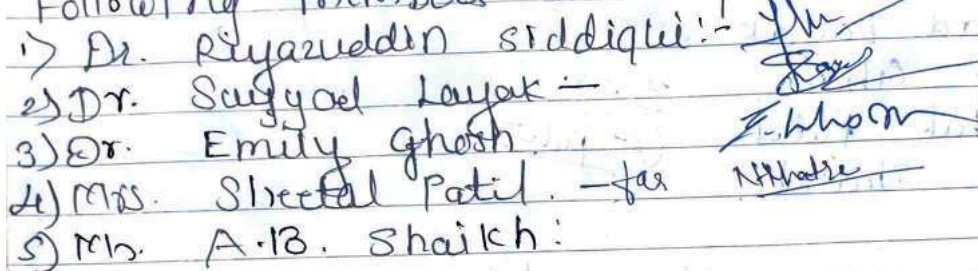 Following
1) Dr. Riyazuddin siddiqui:-
2) Dr. Sayyad Layak -
3) Dr. Emily Ghosh. E. Ghosh
4) Mrs. Sheetal Patil. - for NMhatre
5) Mr. A.B. Shaikh: